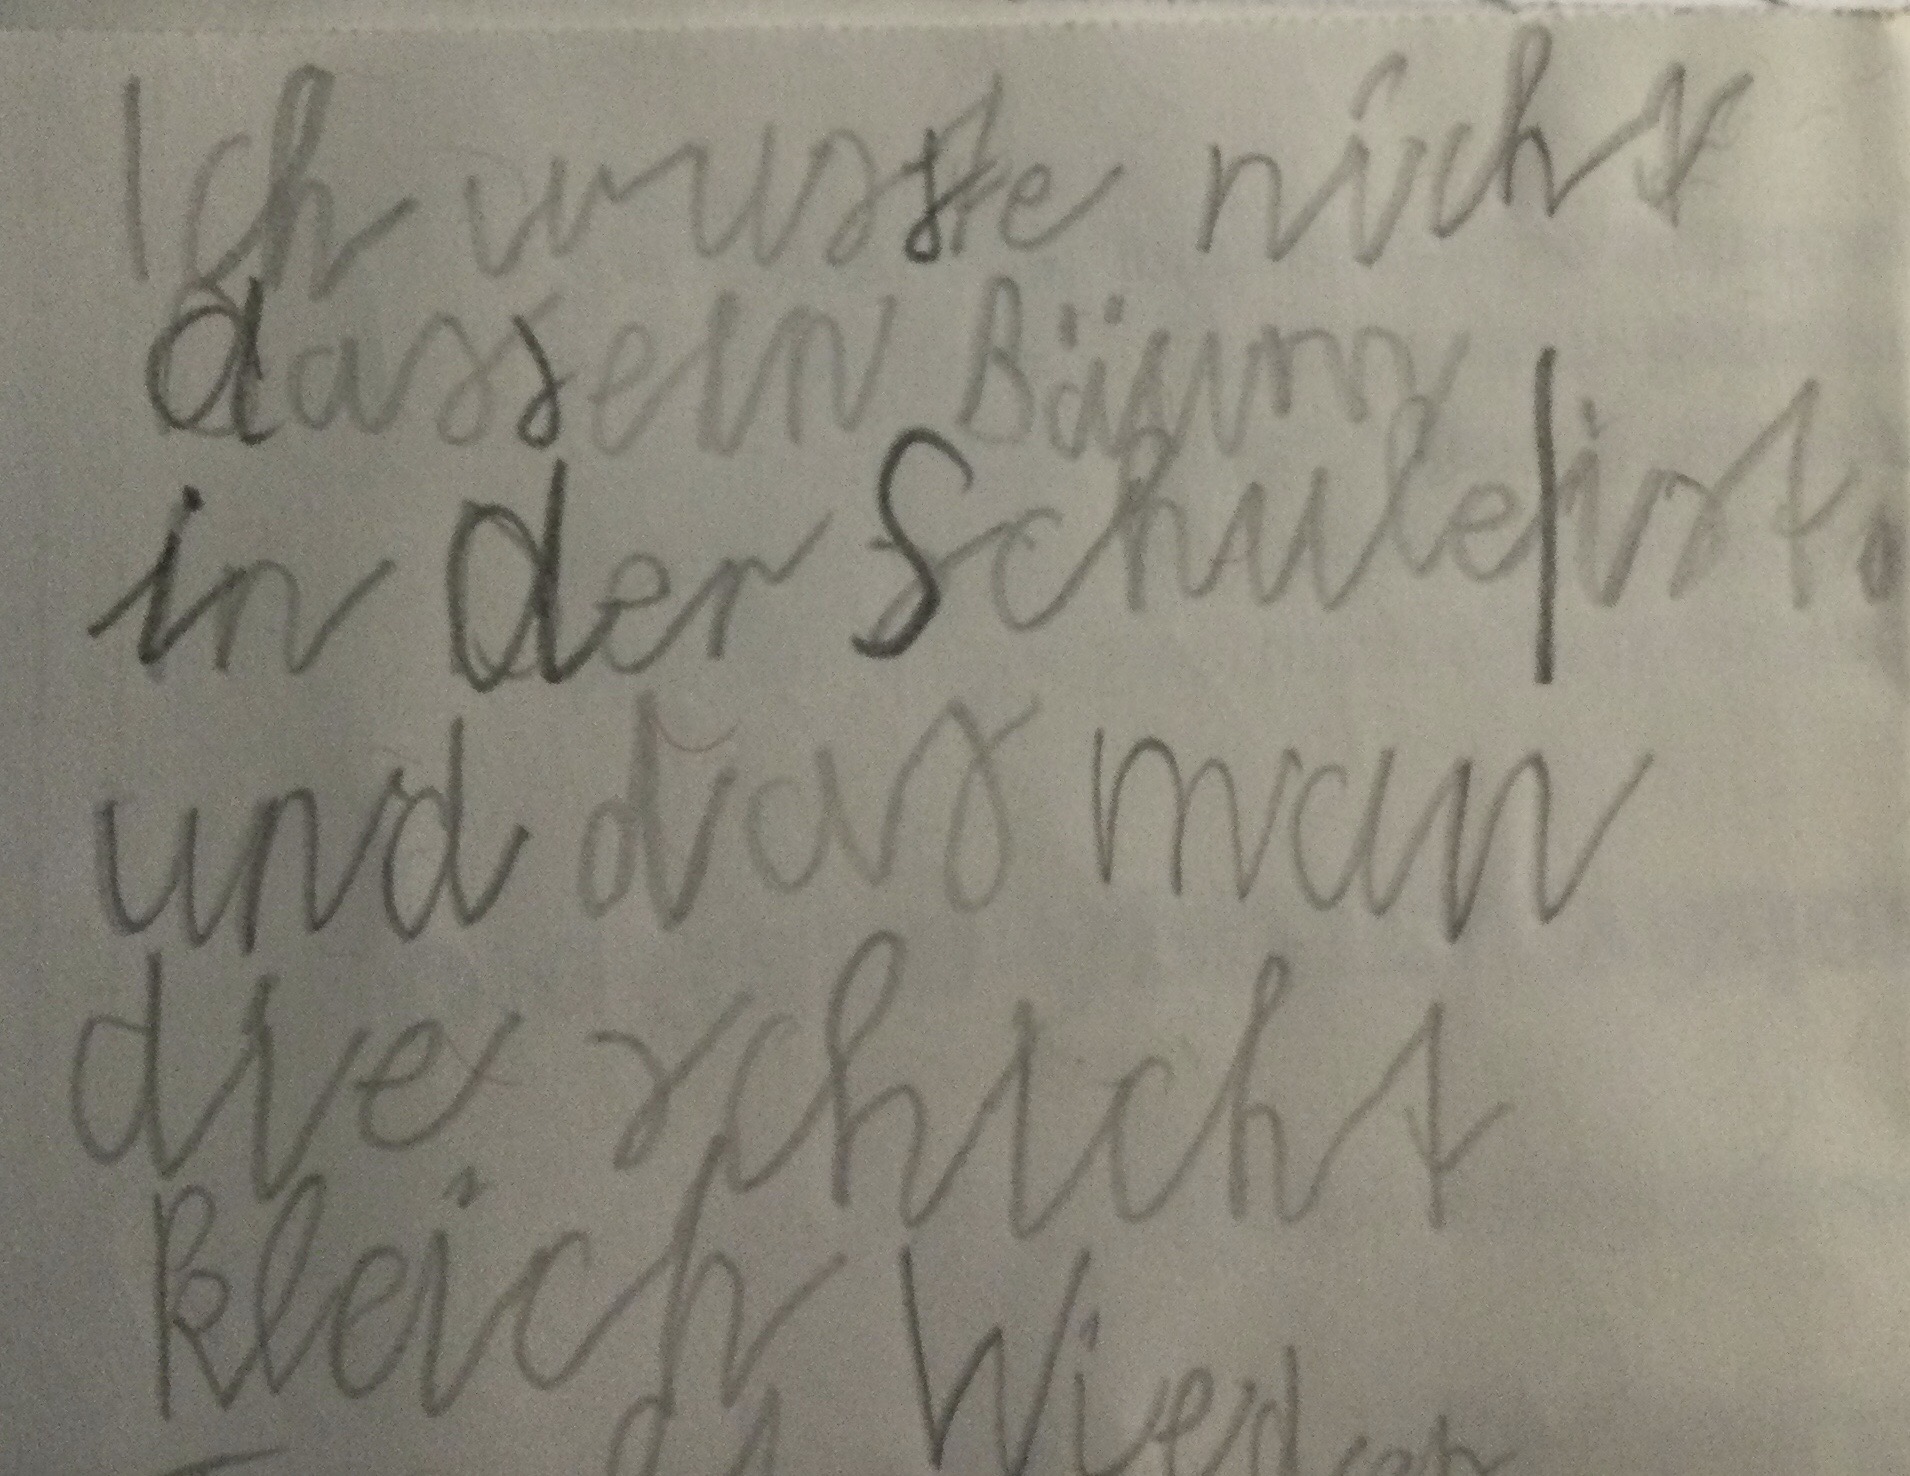 Ich wusste nicht
dass ein Bäum
in der Schule|ist.
und das man
die schicht
kleich Wieder